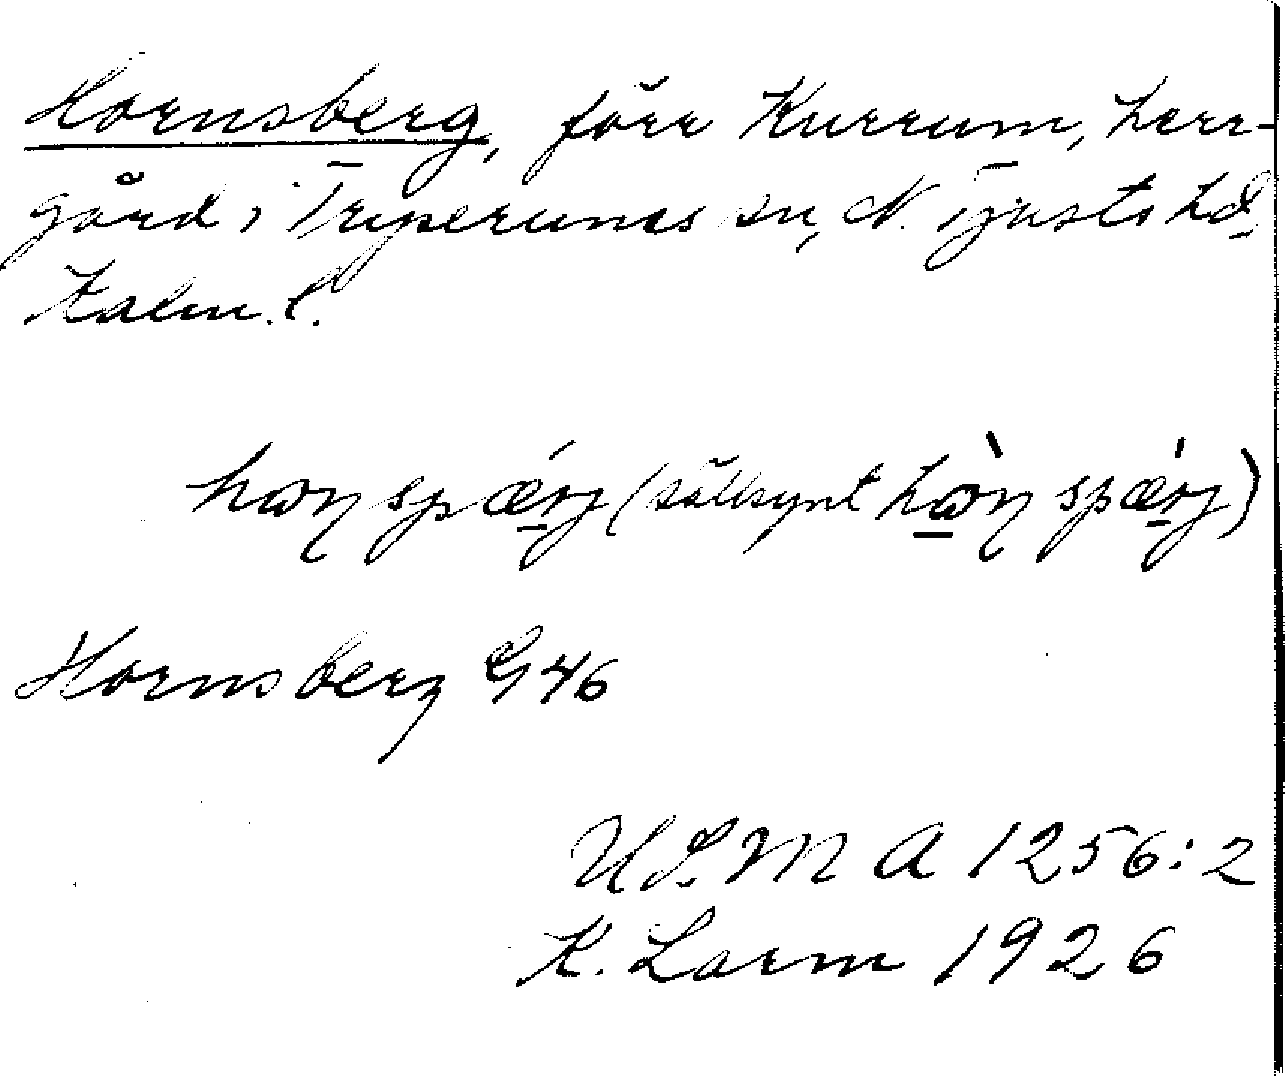 Hornsberg, förr Kurrum, herr-
gård i Tryserums sn, N. Tjusts hd,
Kalm. l.
(sällsynt
Hornsberg G 46
ULMA 1256:2
K. Larm 1926